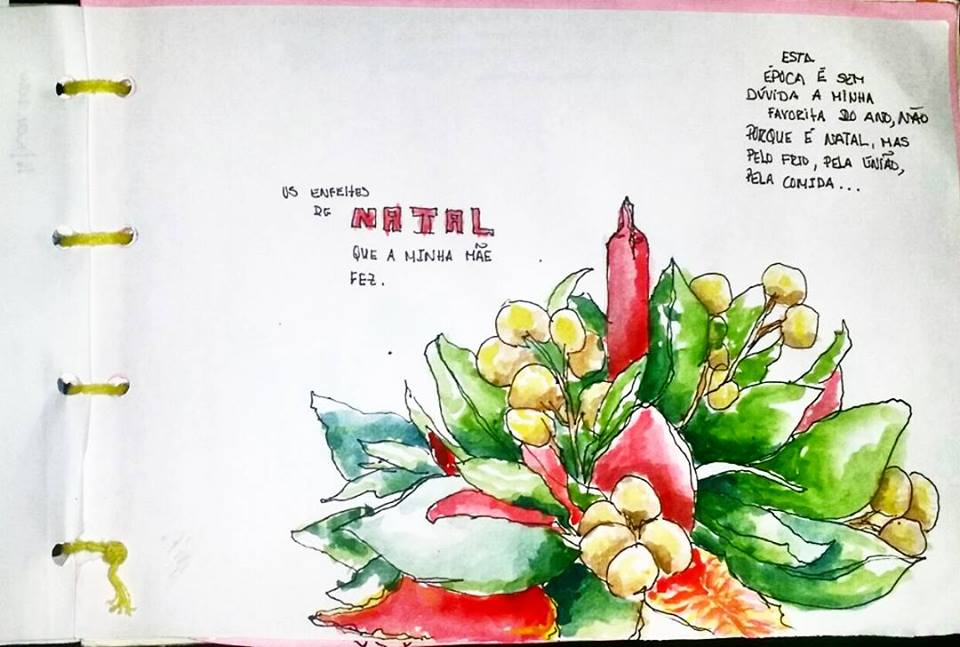 OS ENFEITES
DE NATAL
QUE A MINHA MÃE
FEZ.
ESTA
ÉPOCA É SEM
DÚVIDA A MINHA
FAVORITA DO ANO, NÃO
PORQUE É NATAL, MAS
PELO FRIO, PELA UNIÃO,
PELA COMIDA...